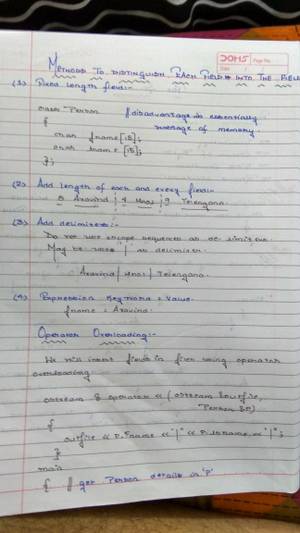 DOMS Page No.
Date
METHODS TO DISTINGUISH EACH FIELD INTO THE FIELD
(1) Fixed Length field:-
class Person
{ disadvantage is essentially
char fname[15]; wastage of memory
char lname[15];
};
(2) Add length of each and every field:-
8 Aravind | 4 | 9 Telangana.
(3) Add delimiters:-
Do not use escape sequences as delimiter
May be use "|" as delimiter
Aravind | | Telangana.
(4) Expression Keyword = Value.
fname = Aravind.
Operator Overloading:-
We will insert fields in files using operator
overloading.
ostream & operator << (ostream &outfile,
Person &P)
{
outfile << P.fname << "|" << P.lname << "|";
}
main
{ // get Person details in 'P'